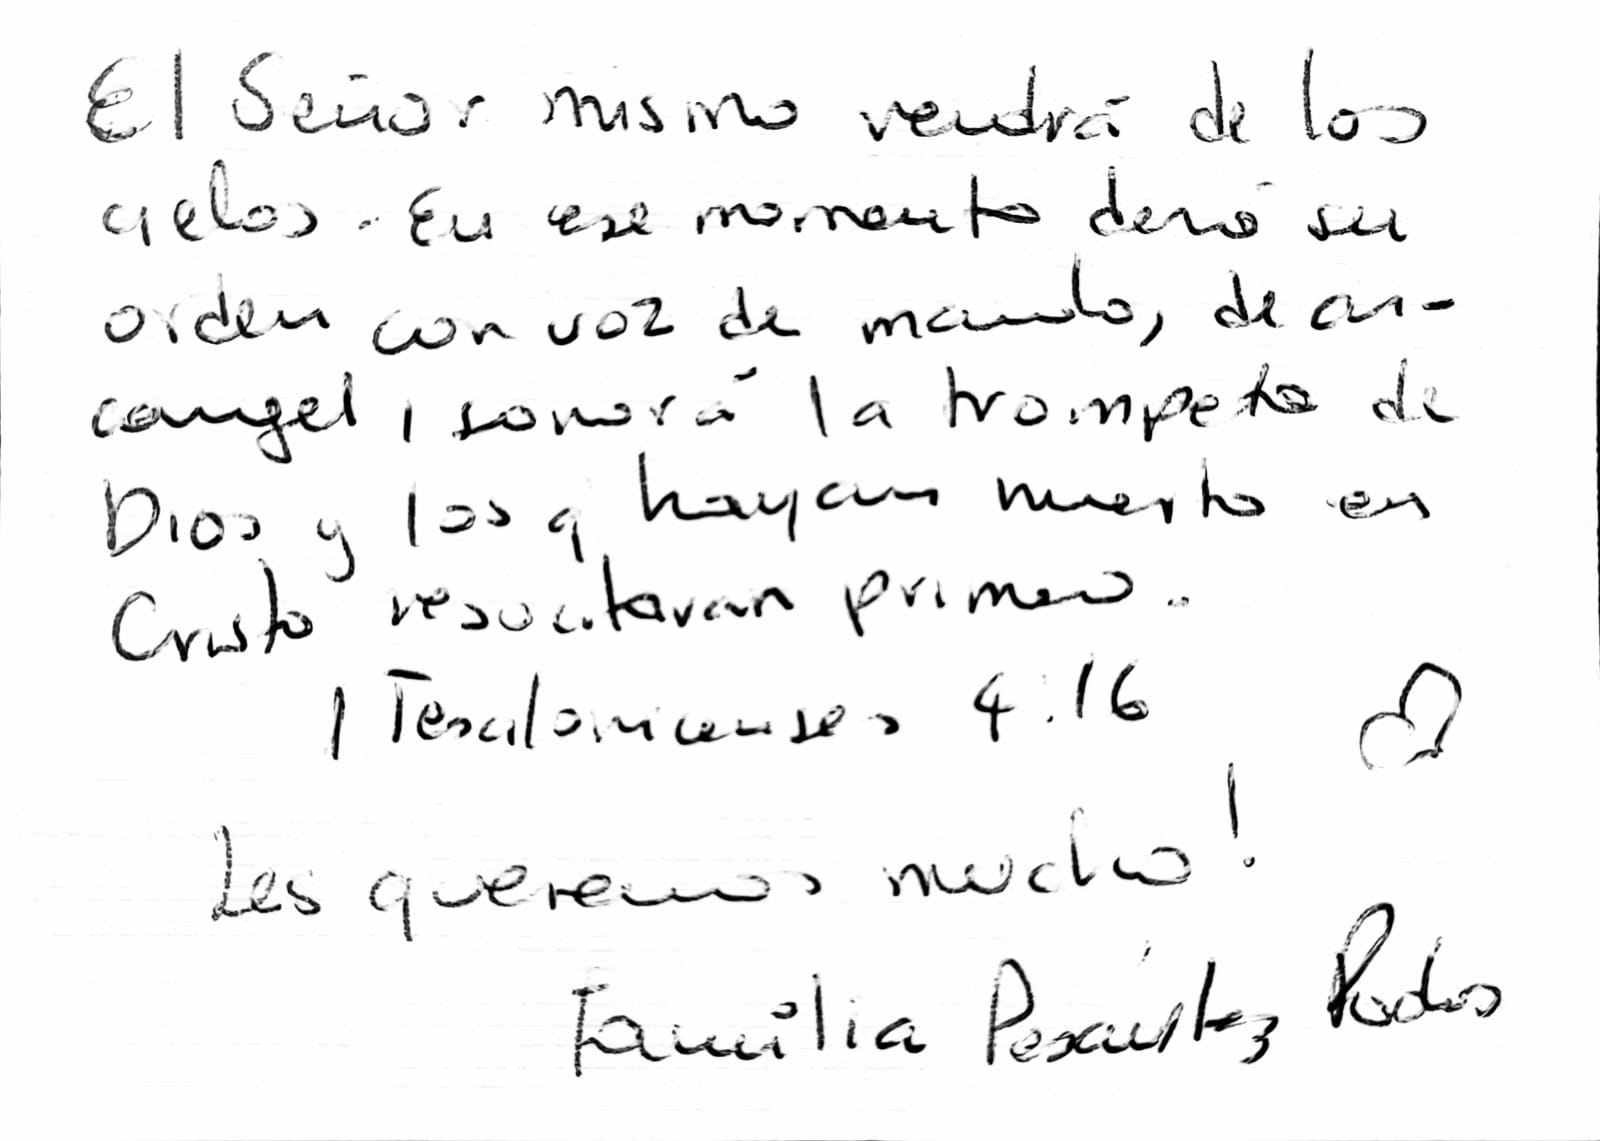 El Señor mismo vendrá de los
cielos. En ese momento dará su
orden con voz de mando, de ar-
cangel, sonorá la trompeta de
Dios y los q hayan muerto en
Cristo resucitaran primero.
1 Tesalonicenses 4:16
Les queremos mucho!
Familia Pesántez